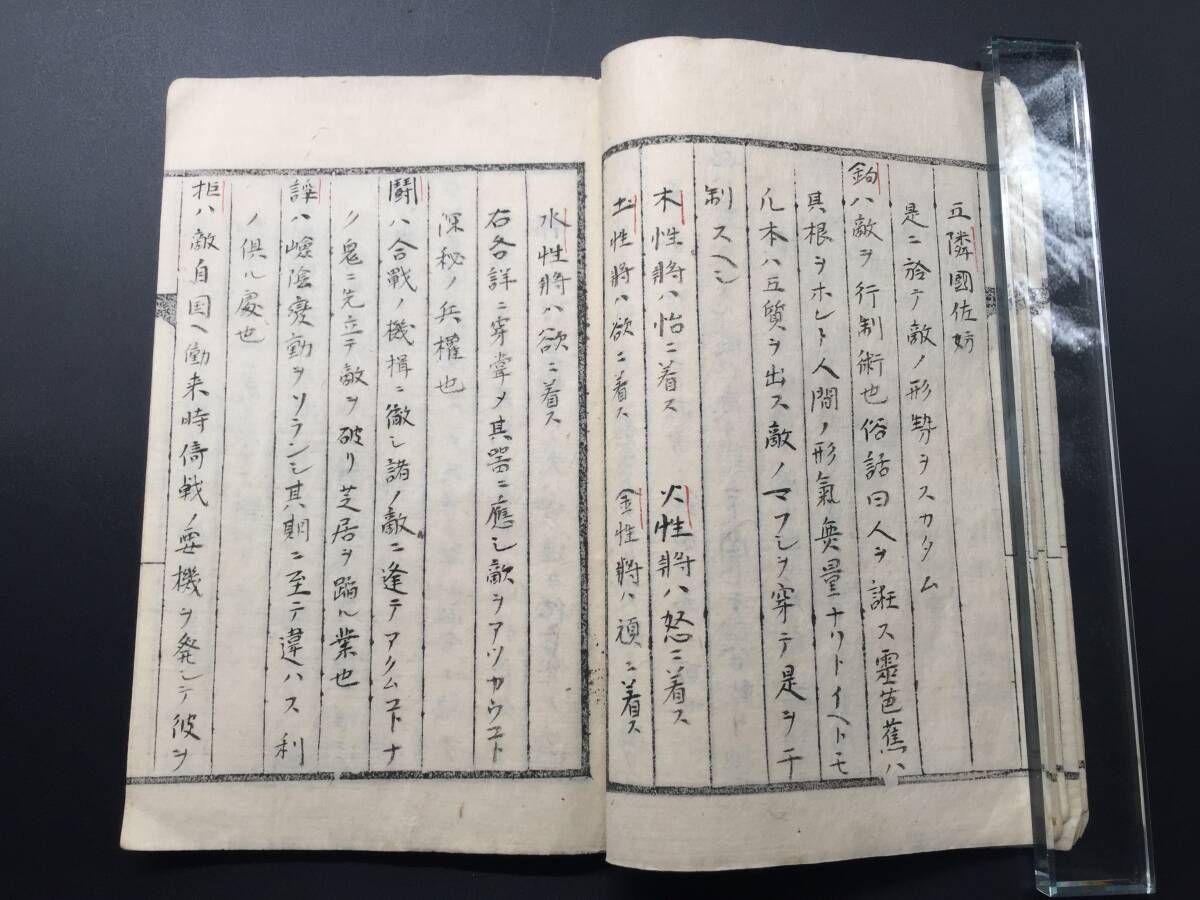 五隣國佐妨
是ニ於テ敵ノ形勢ヲスカタム
鉤ハ敵ヲ行制術也俗話曰人ヲ誑ス靈芭蕉ハ
其根ヲホレト人間ノ形氣無量ナリトイヘトモ
凡本ハ五質ヲ出ス敵ノマフシヲ穿テ是ヲ干
制スヘシ
木性將ハ怡ニ着ス 火性將ハ怒ニ着ス
土性將ハ欲ニ着ス 金性將ハ頑ニ着ス
水性將ハ欲ニ着ス
右各詳ニ穿掌メ其器ニ應シ敵ヲアツカウヿ
深秘ノ兵權也
鬪ハ合戰ノ機揖ニ徹シ諸ノ敵ニ逢テアクムヿナ
ク鬼ニ先立テ敵ヲ破リ芝居ヲ蹈ル業也
譁ハ陰變動ヲソランシ其期ニ至テ違ハス利
ノ俱ル處也
拒ハ敵自国ヘ働来時倚戦ノ要機ヲ発シテ彼ヲ